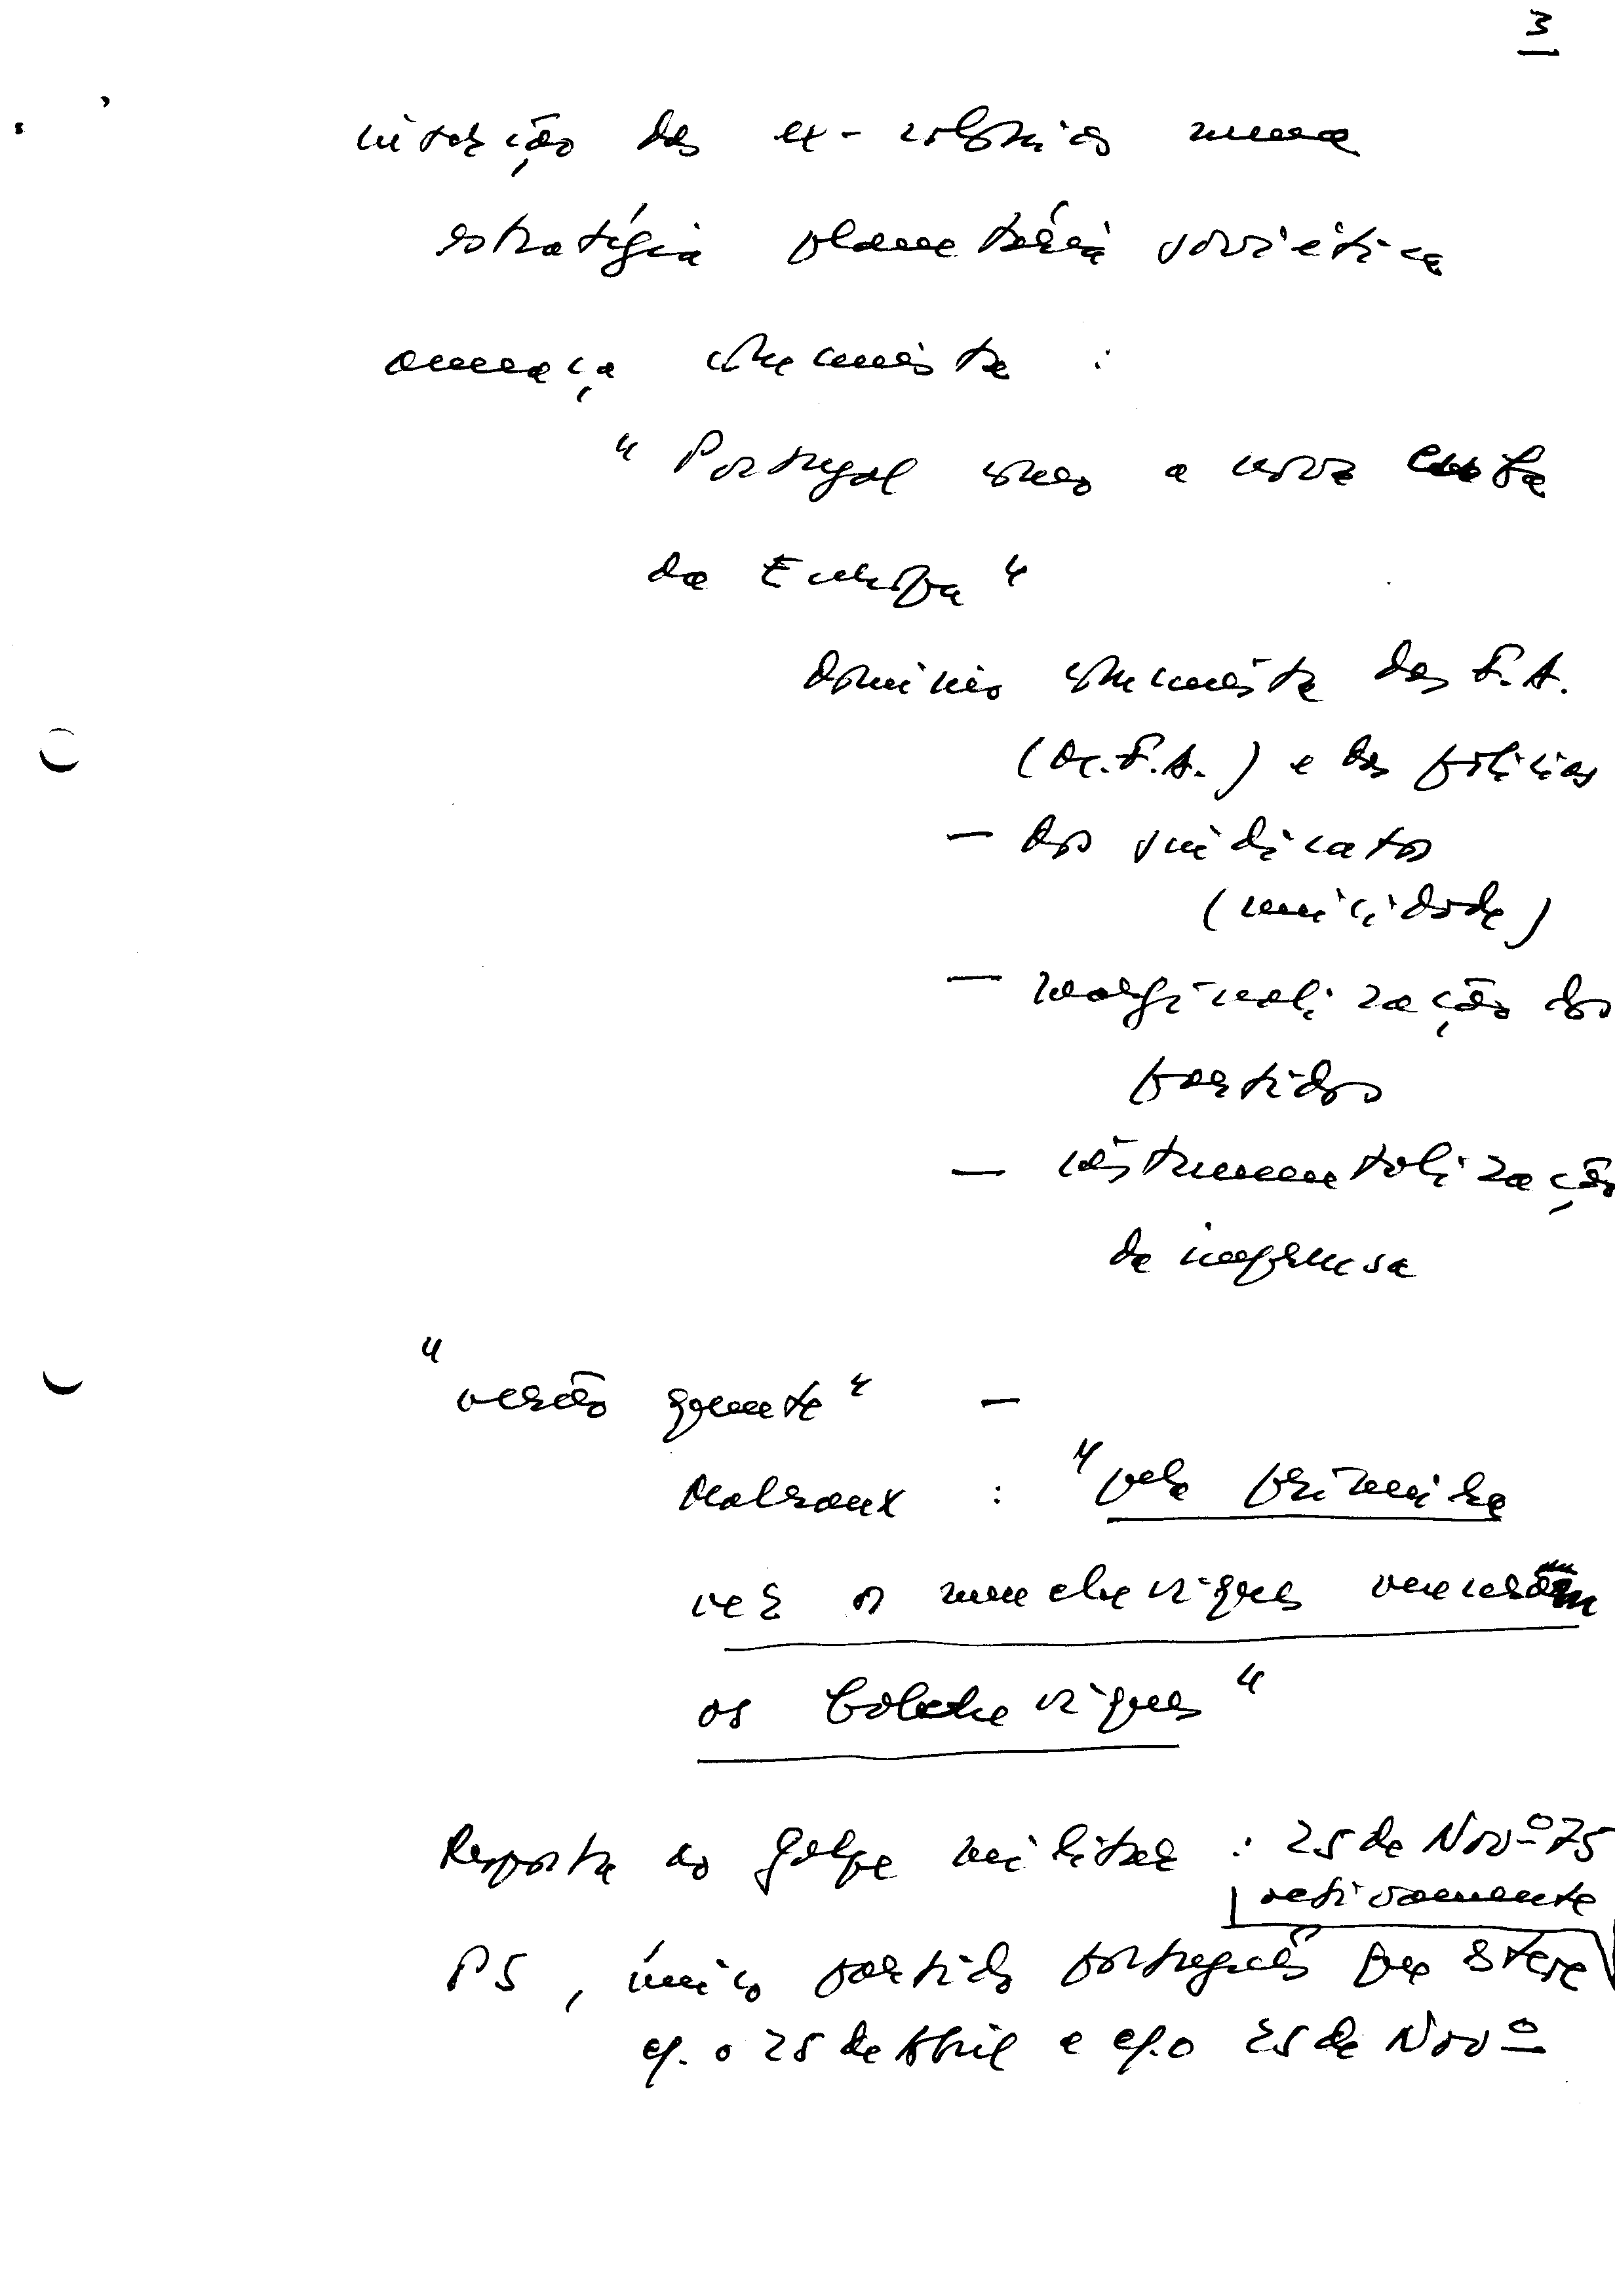 3
inserção das ex-colónias numa
estratégia planetária soviética
ameaça comunista :
" Portugal como a nova Cuba
da Europa "
domínio comunista das F.A.
(M.F.A.) e das polícias
— dos sindicatos
(unicidade)
— marginalização dos
partidos
— instrumentalização
da imprensa
" verão quente " —
Malraux : " pela primeira
vez os mencheviques venceram
os bolcheviques "
Resposta ao golpe militar : 25 de Novº 75
activamente
PS, único partido português que esteve
c/. o 25 de Abril e c/. o 25 de Novº